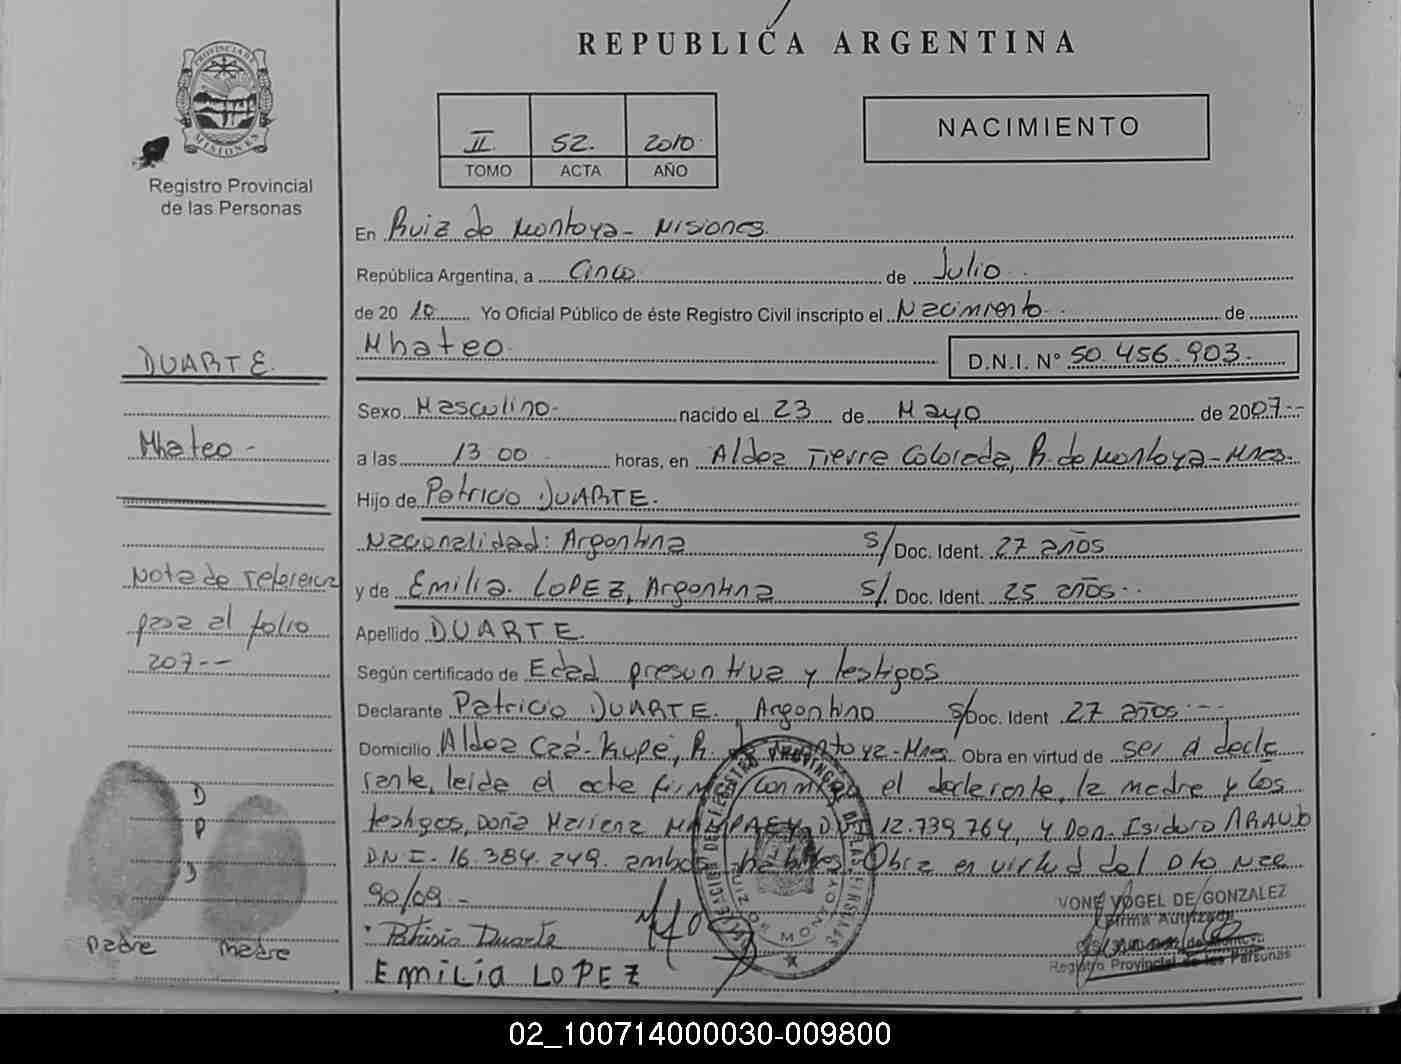 REPUBLICA ARGENTINA
PROVINCIA DE
MISIONES
Registro Provincial
de las Personas
II. 52. 2010.
TOMO ACTA AÑO
NACIMIENTO
En Ruiz de Montoya - Misiones.
República Argentina, a Cinco de Julio
de 20 10 Yo Oficial Público de éste Registro Civil inscripto el Nacimiento de
Mhateo. D.N.I. Nº 50.456.903.
DUARTE.
Sexo Masculino. nacido el 23 de Mayo de 2007.--
Mhateo -
a las 13 00 horas, en Aldea Tierra Colorada, R. de Montoya - Mnes.
Hijo de Patricio DUARTE.
Nacionalidad: Argentina S/ Doc. Ident. 27 años
y de Emilia. LOPEZ, Argentina S/. Doc. Ident. 25 años.
Nota de referencia
pasa al folio
207--
Apellido DUARTE.
Según certificado de Edad presuntiva y testigos
Declarante Patricio DUARTE., Argentino S/Doc. Ident 27 años.--
Domicilio Aldea Kupe, R. Montoya - Mnes. Obra en virtud de ser d decla
rante, leida el acta conmigo el declarante, la madre y los
testigos, Doña Mariena 12.739.764, y Don. Isidoro
DNI. 16.384.249. ambos Obra en virtud del Dto Nac
90/09 -
D
P
D
Padre Madre
Patrisio Duarte
EMILIA LOPEZ
VOGEL DE GONZALEZ
Registro Provincial de las Personas
02_100714000030-009800